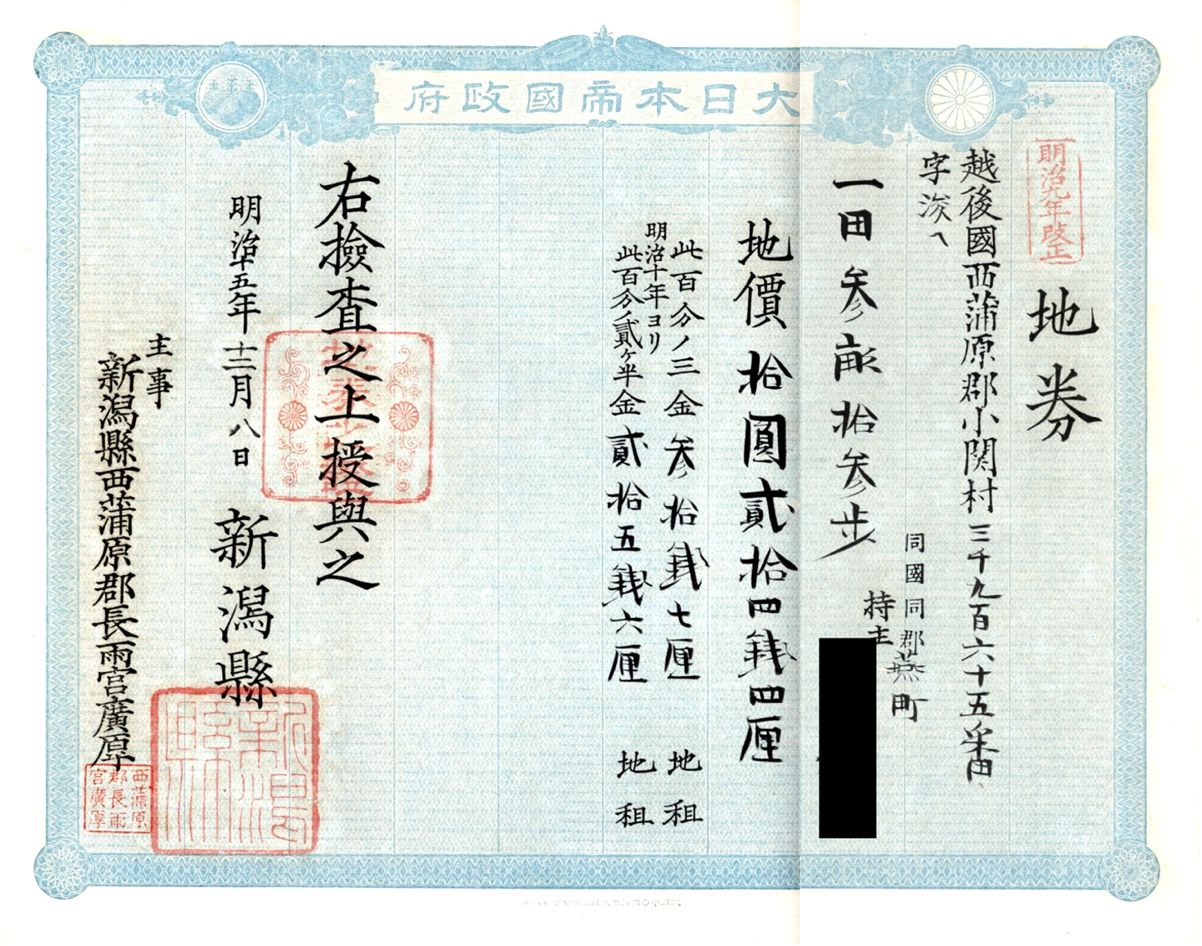 大日本帝國政府
明治九年改正
地券
越後國西蒲原郡小関村三千九百六十五番
字
同國同郡燕町
持主
一田参畝拾参歩
地價拾圓貳拾四錢四厘
此百分ノ三金参拾錢七厘 地租
明治十年ヨリ
此百分ノ貳ヶ半金貳拾五錢六厘 地租
右撿査之上授與之
明治十五年十二月八日 新潟縣
主事
新潟縣西蒲原郡長雨宮廣厚
新潟縣
西蒲原
郡長雨
宮廣厚